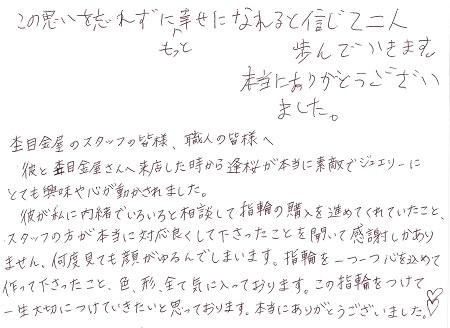 この思いを忘れずに幸せになれると信じて二人
もっと
歩んでいきます。
本当にありがとうござい
ました。
杢目金屋のスタッフの皆様、職人の皆様へ
彼と杢目金屋さんへ来店した時から逢桜が本当に素敵でジュエリーに
とても興味や心が動かされました。
彼が私に内緒でいろいろと相談して指輪の購入を進めてくれていたこと、
スタッフの方が本当に対応良くして下さったことを聞いて感謝しかあり
ません、何度見ても顔がゆるんでしまいます。指輪を一つ一つ心を込めて
作って下さったこと、色、形、全て気に入っております。この指輪をつけて
一生大切につけていきたいと思っております。本当にありがとうございました。♡